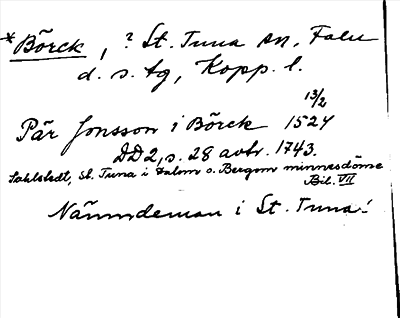 *Börck, ? St. Tuna sn, Falu
d. s. tg, Kopp. l.
Pär Jonsson i Börck 13/2 1524
DD 2, s. 28 avtr. 1743.
Sahlstedt, St. Tuna i Dalom o. Bergom minnesdöme
Bil. VII
Nämndeman i St. Tuna!